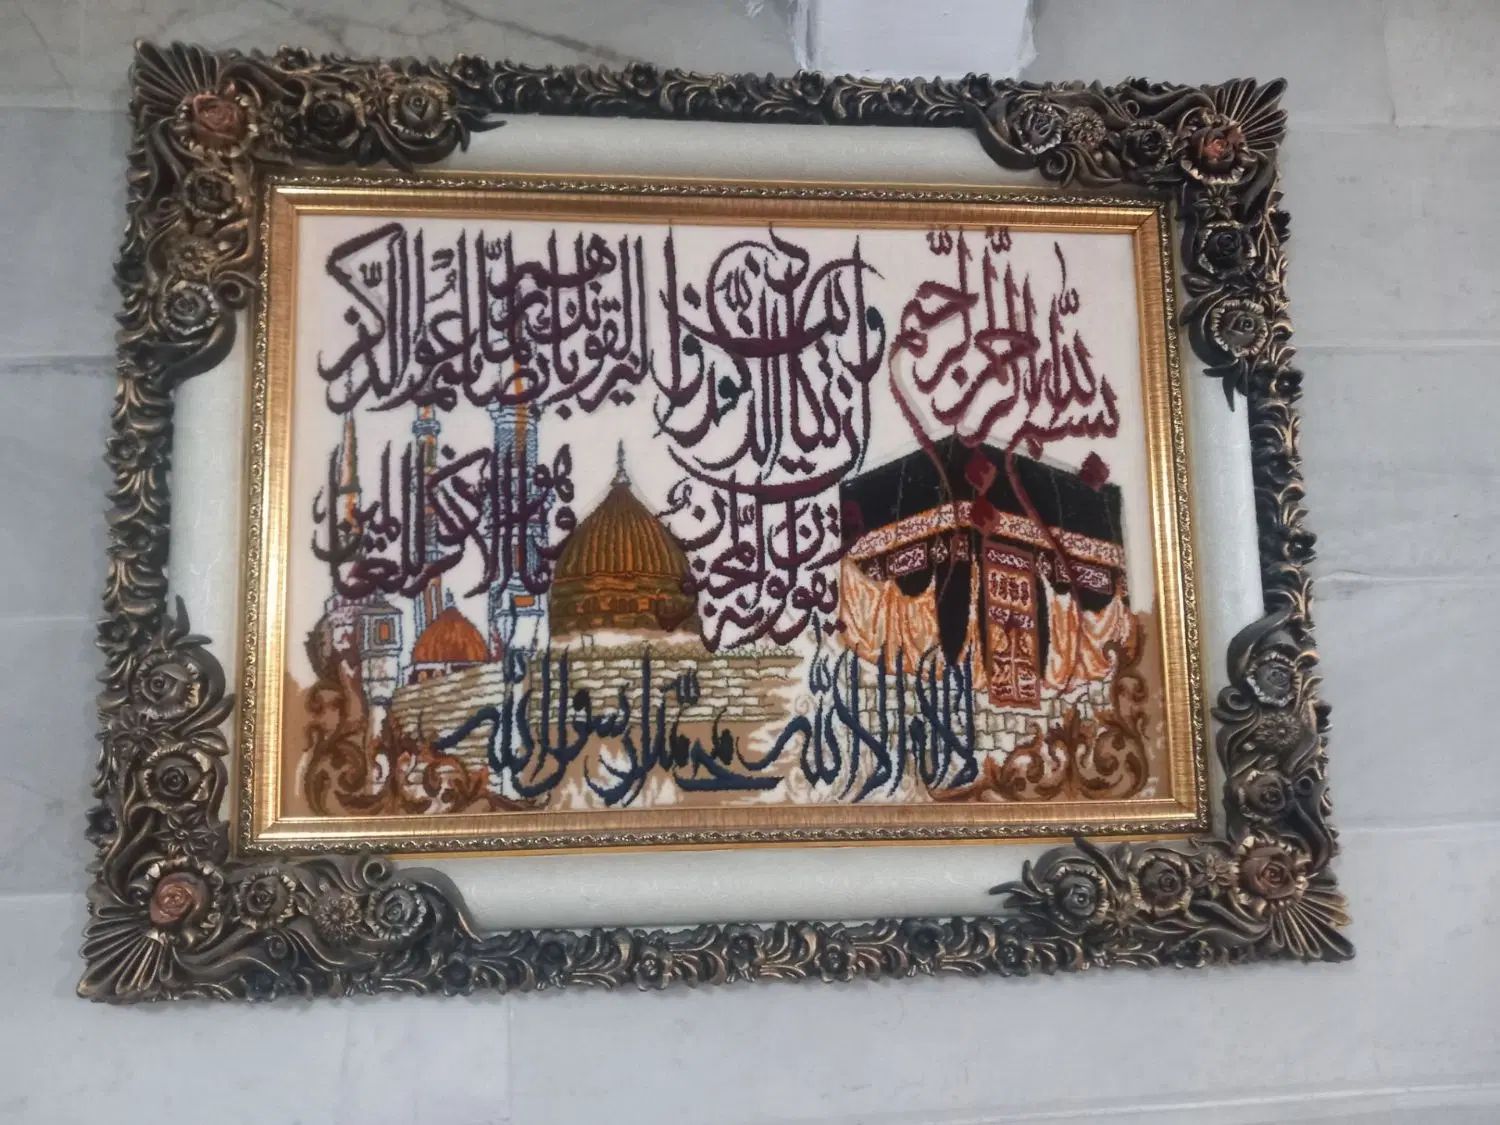 بسم الله الرحمن الرحيم
وإن يكاد الذين كفروا ليزلقونك بأبصارهم لما سمعوا الذكر
ويقولون إنه لمجنون وما هو إلا ذكر للعالمين
لا إله إلا الله محمد رسول الله